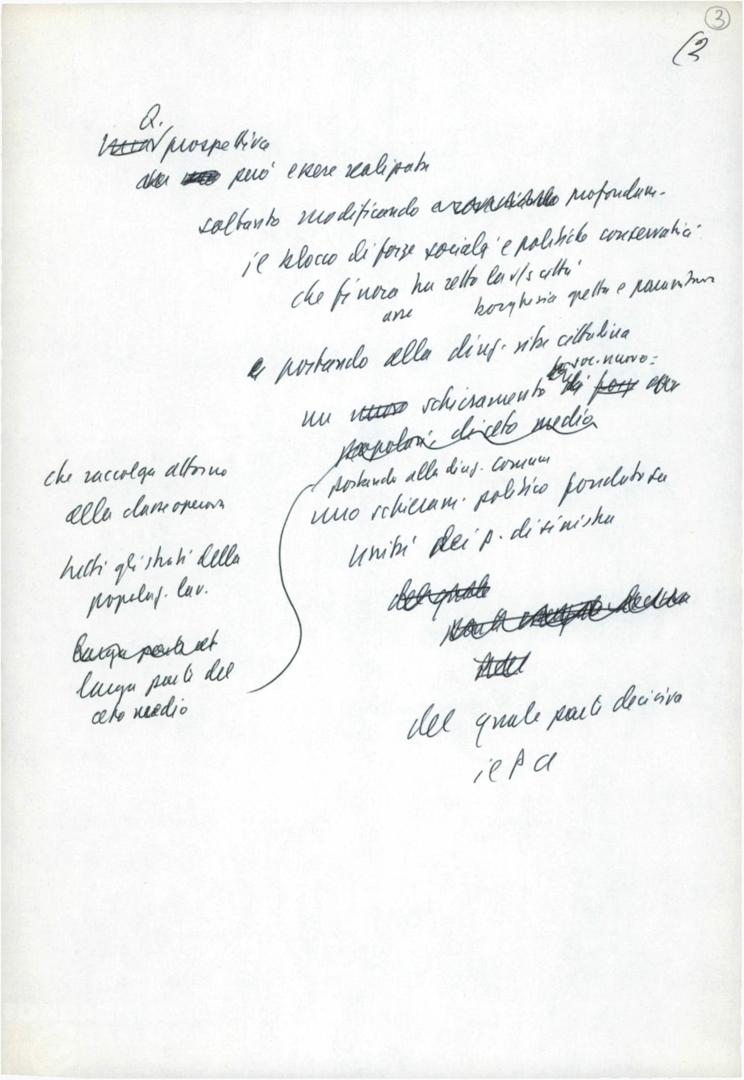 3
(2
Q.
prospettiva
può essere realizzata
soltanto modificando profondam.
il blocco di forze sociali e politiche conservatrici
che finora ha retto la città
borghesia gretta e
e portando alla direz. cittadina
soc. nuovo:
un nuovo schieramento di forze
popolari di ceto medio
portando alla direz. comun
uno schieram. politico fondato su
unità dei p. di sinistra
del quale
del quale parte decisiva
il P CI
che raccolga attorno
alla classe operaia
tutti gli strati della
popolaz. lav.
larga parte del
larga parte del
ceto medio